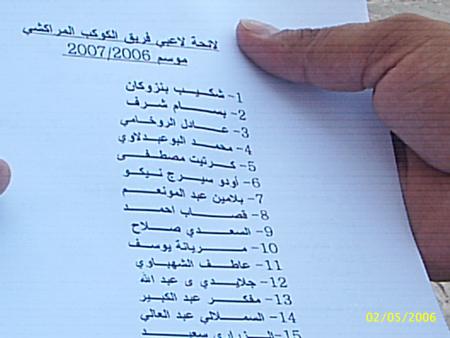 لائحة لاعبي فريق الكوكب المراكشي
موسم 2007/2006
1- شكيب بنزوكان
2- بسام شرف
3- عادل الروخامي
4- محمد البوعبدلاوي
5- كرتيت مصطفى
6- أودو سيرج نيكو
7- بلامين عبد المونعم
8- قصاب احمد
9- السعدي صلاح
10- مريانة يوسف
11- عاطف الشهباوي
12- جلايدي ى عبد الله
13- مفكر عبد الكبير
14- السملالي عبد العالي
15- الزراري سعيد
02/05/2006